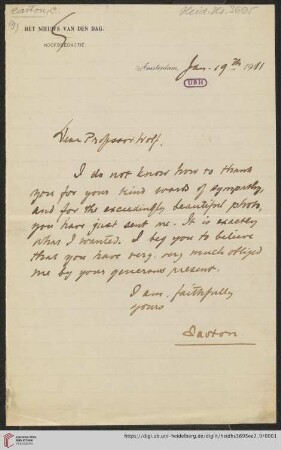 Easton, C.
Heid. Hs. 3695
HET NIEUWS VAN DEN DAG.
HOOFDREDACTIE
Amsterdam, Jan. 19th 1911
UBH
Dear Professor Wolf,
I do not know how to thank
you for your kind words of sympathy,
and for the exceedingly beautiful photo,
you have just sent me. It is exactly
what I wanted. I beg you to believe
that you have very, very much obliged
me by your generous present.
I am, faithfully
yours
Easton
UNIVERSITÄTS-
BIBLIOTHEK
HEIDELBERG
https://digi.ub.uni-heidelberg.de/diglit/heidhs3695ez2_9/0001